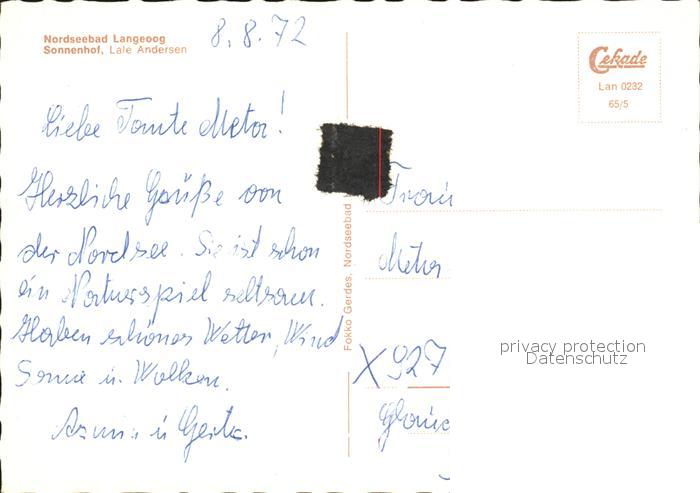 Nordseebad Langeoog
Sonnenhof, Lale Andersen
8.8.72
Cekade
Lan 0232
65/5
Liebe Tante Meta!
Herzliche Grüße von
der Nordsee. Sie ist schon
ein Naturspiel seltsam.
Haben schönes Wetter, Wind
Sonne u. Wolken.
u Gerta.
Fokko Gerdes, Nordseebad
Frau
Meta
X927
Glauc
privacy protection
Datenschutz